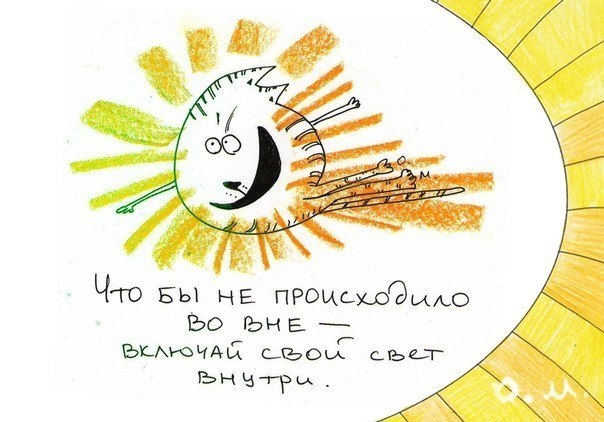 О.
М.
Что бы не происходило
во вне —
включай свой свет
внутри.
О. М.